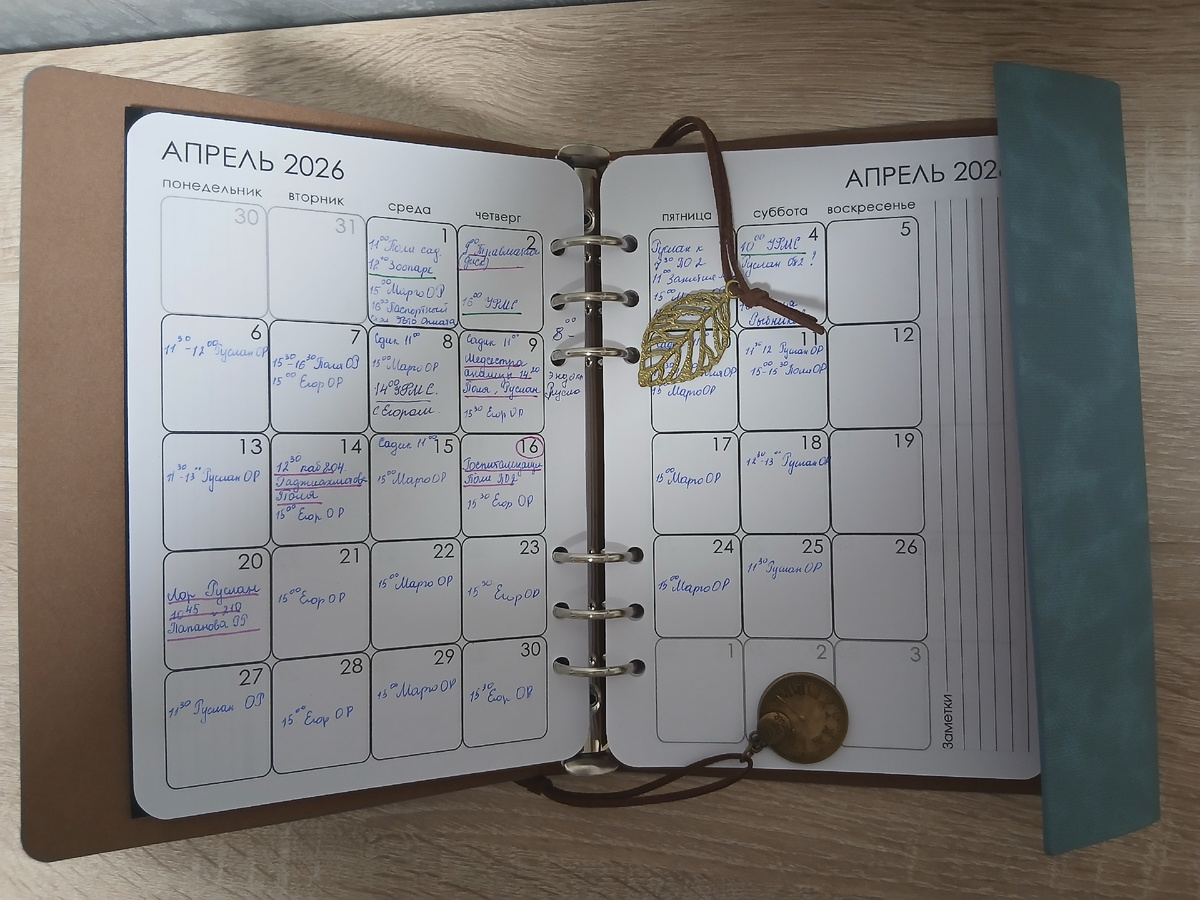 АПРЕЛЬ 2026
понедельник вторник среда четверг
30
31
1
11⁰⁰ Поли сад.
12⁴⁰ Зоопарк
15⁰⁰ Марго ОР
16⁰⁰ Паспортный
2
диск)
16⁰⁰ УРМС
6
11³⁰-12⁰⁰ Руслан ОР
7
15³⁰-16³⁰ Поля ОР
15⁰⁰ Егор ОР
8
Садик 11⁰⁰
15⁰⁰ Марго ОР
14⁰⁰ УРМС.
с Егором.
9
Садик 11⁰⁰
Медсестра
14²⁰
Поля, Руслан
15³⁰ Егор ОР
8-⁰⁰
13
11³⁰-13⁰⁰ Руслан ОР
14
12³⁰ каб 204.
Гаджиахметова
Поля
15⁰⁰ Егор ОР
15
Садик 11⁰⁰
15⁰⁰ Марго ОР
16
Госпитализация
Поли ПО2
15³⁰ Егор ОР
20
Лор Руслан
10⁴⁵ к 210
Папанова
21
15⁰⁰ Егор ОР
22
15⁰⁰ Марго ОР
23
15³⁰ Егор ОР
27
11³⁰ Руслан ОР
28
15⁰⁰ Егор ОР
29
15⁰⁰ Марго ОР
30
15³⁰ Егор ОР
АПРЕЛЬ 202
пятница суббота воскресенье
Руслан к
ПО 2
11⁰⁰ Занятие
15⁰⁰
4
10⁰⁰ УРМС
Руслан
5
11
11³⁰-12 Руслан ОР
15⁰⁰-15³⁰ Поля ОР
15⁰⁰ Марго ОР
12
17
15⁰⁰ Марго ОР
18
12³⁰-13⁰⁰ Руслан ОР
19
24
15⁰⁰ Марго ОР
25
11³⁰ Руслан ОР
26
1
2
3
Заметки